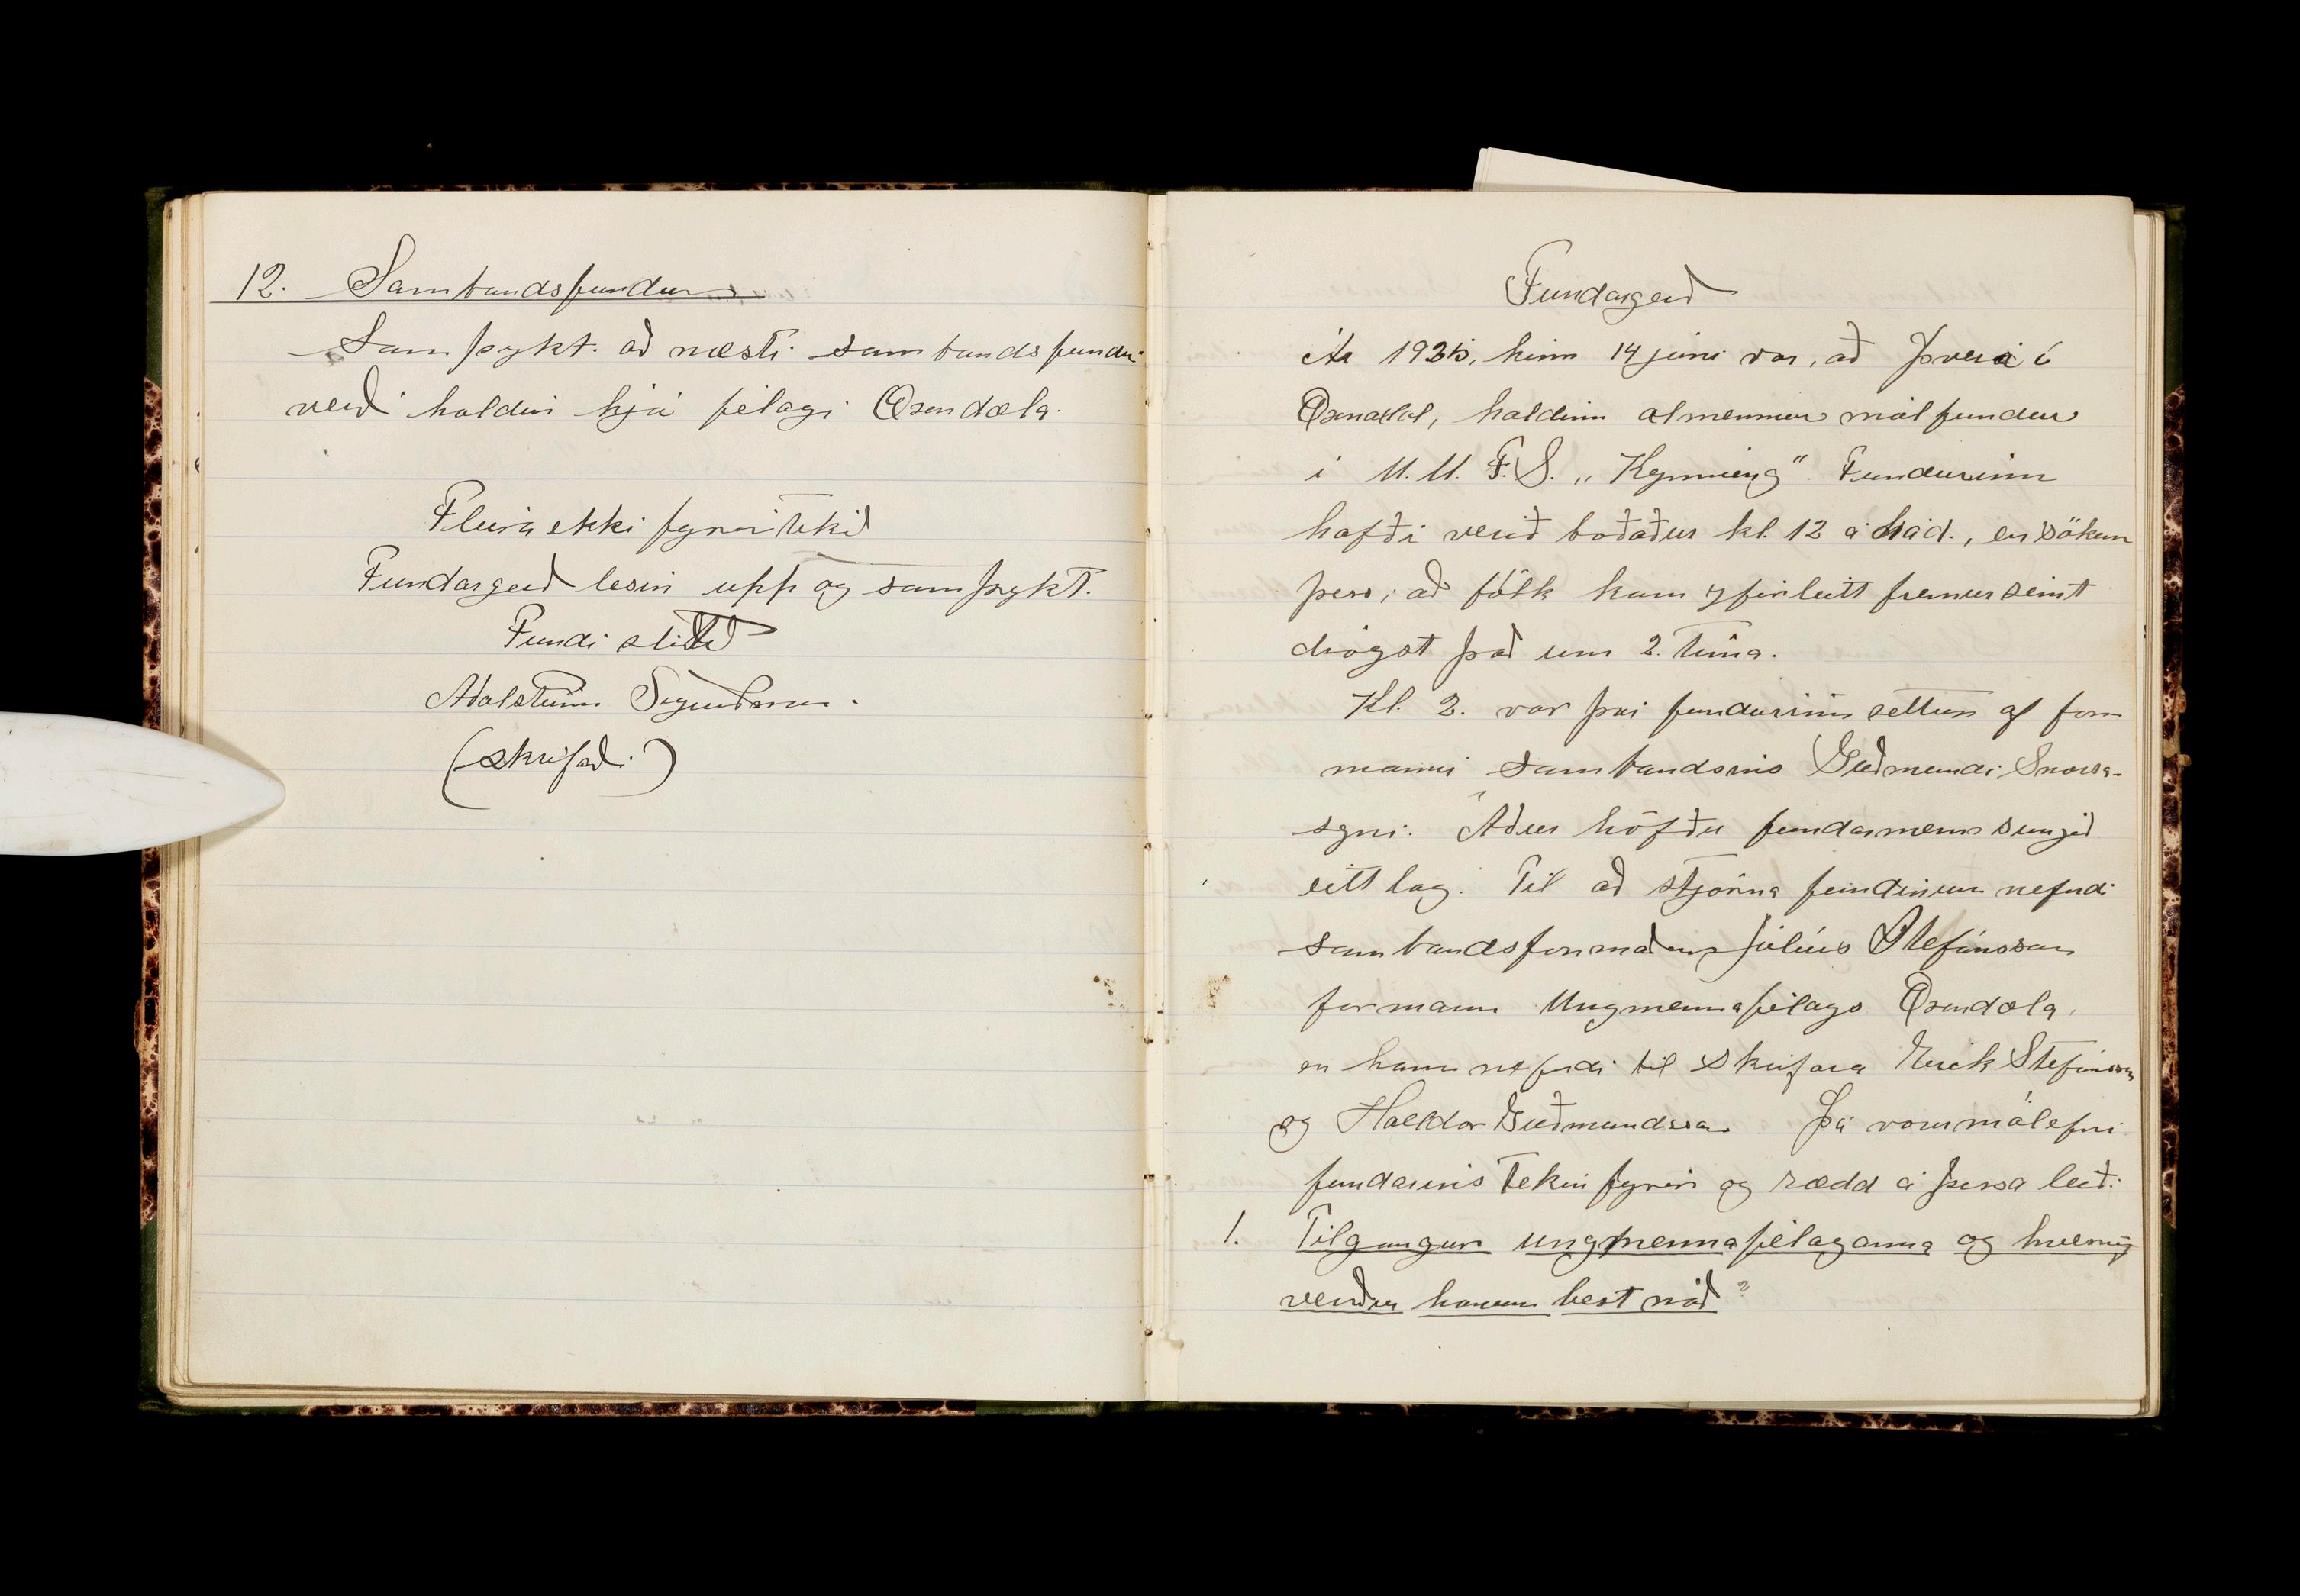 12. Sambandsfundur
Samþykt að næsti sambandsfundur
verði haldin hjá félagi Öxndæla.
Fleira ekki fyrir tekið
Fundargerð lesin upp og samþykt.
Fundi slitið
Aðalsteinn Sigurðsson.
(skrifaði)
Fundargerð
Ár 1925, hinn 14 júni var, að Þverá í
Öxnadal, haldinn almennur málfundur
í U.M.F.S. „Kynning". Fundurinn
hafði verið boðaður kl. 12 á hád., en sökum
þess, að fólk kom yfirleitt fremur seint
drógst það um 2. tíma.
Kl. 2. var þvi fundurinn settur af for
manni sambandsins Guðmundi Snorra-
syni. Áður höfðu fundarmenn sungið
eitt lag. Til að stjórna fundinum nefndi
sambandsformaður Júlíus Stefánsson
formann Ungmennafélags Öxndæla,
en hann nefndi til skrifara Eirik Stefánsson
og Halldor Guðmundsson. Þá voru málefni
fundarins tekin fyrir og rædd á þessa leið:
1. Tilgangur ungmennafélaganna og hvernig
verður honum best náð?